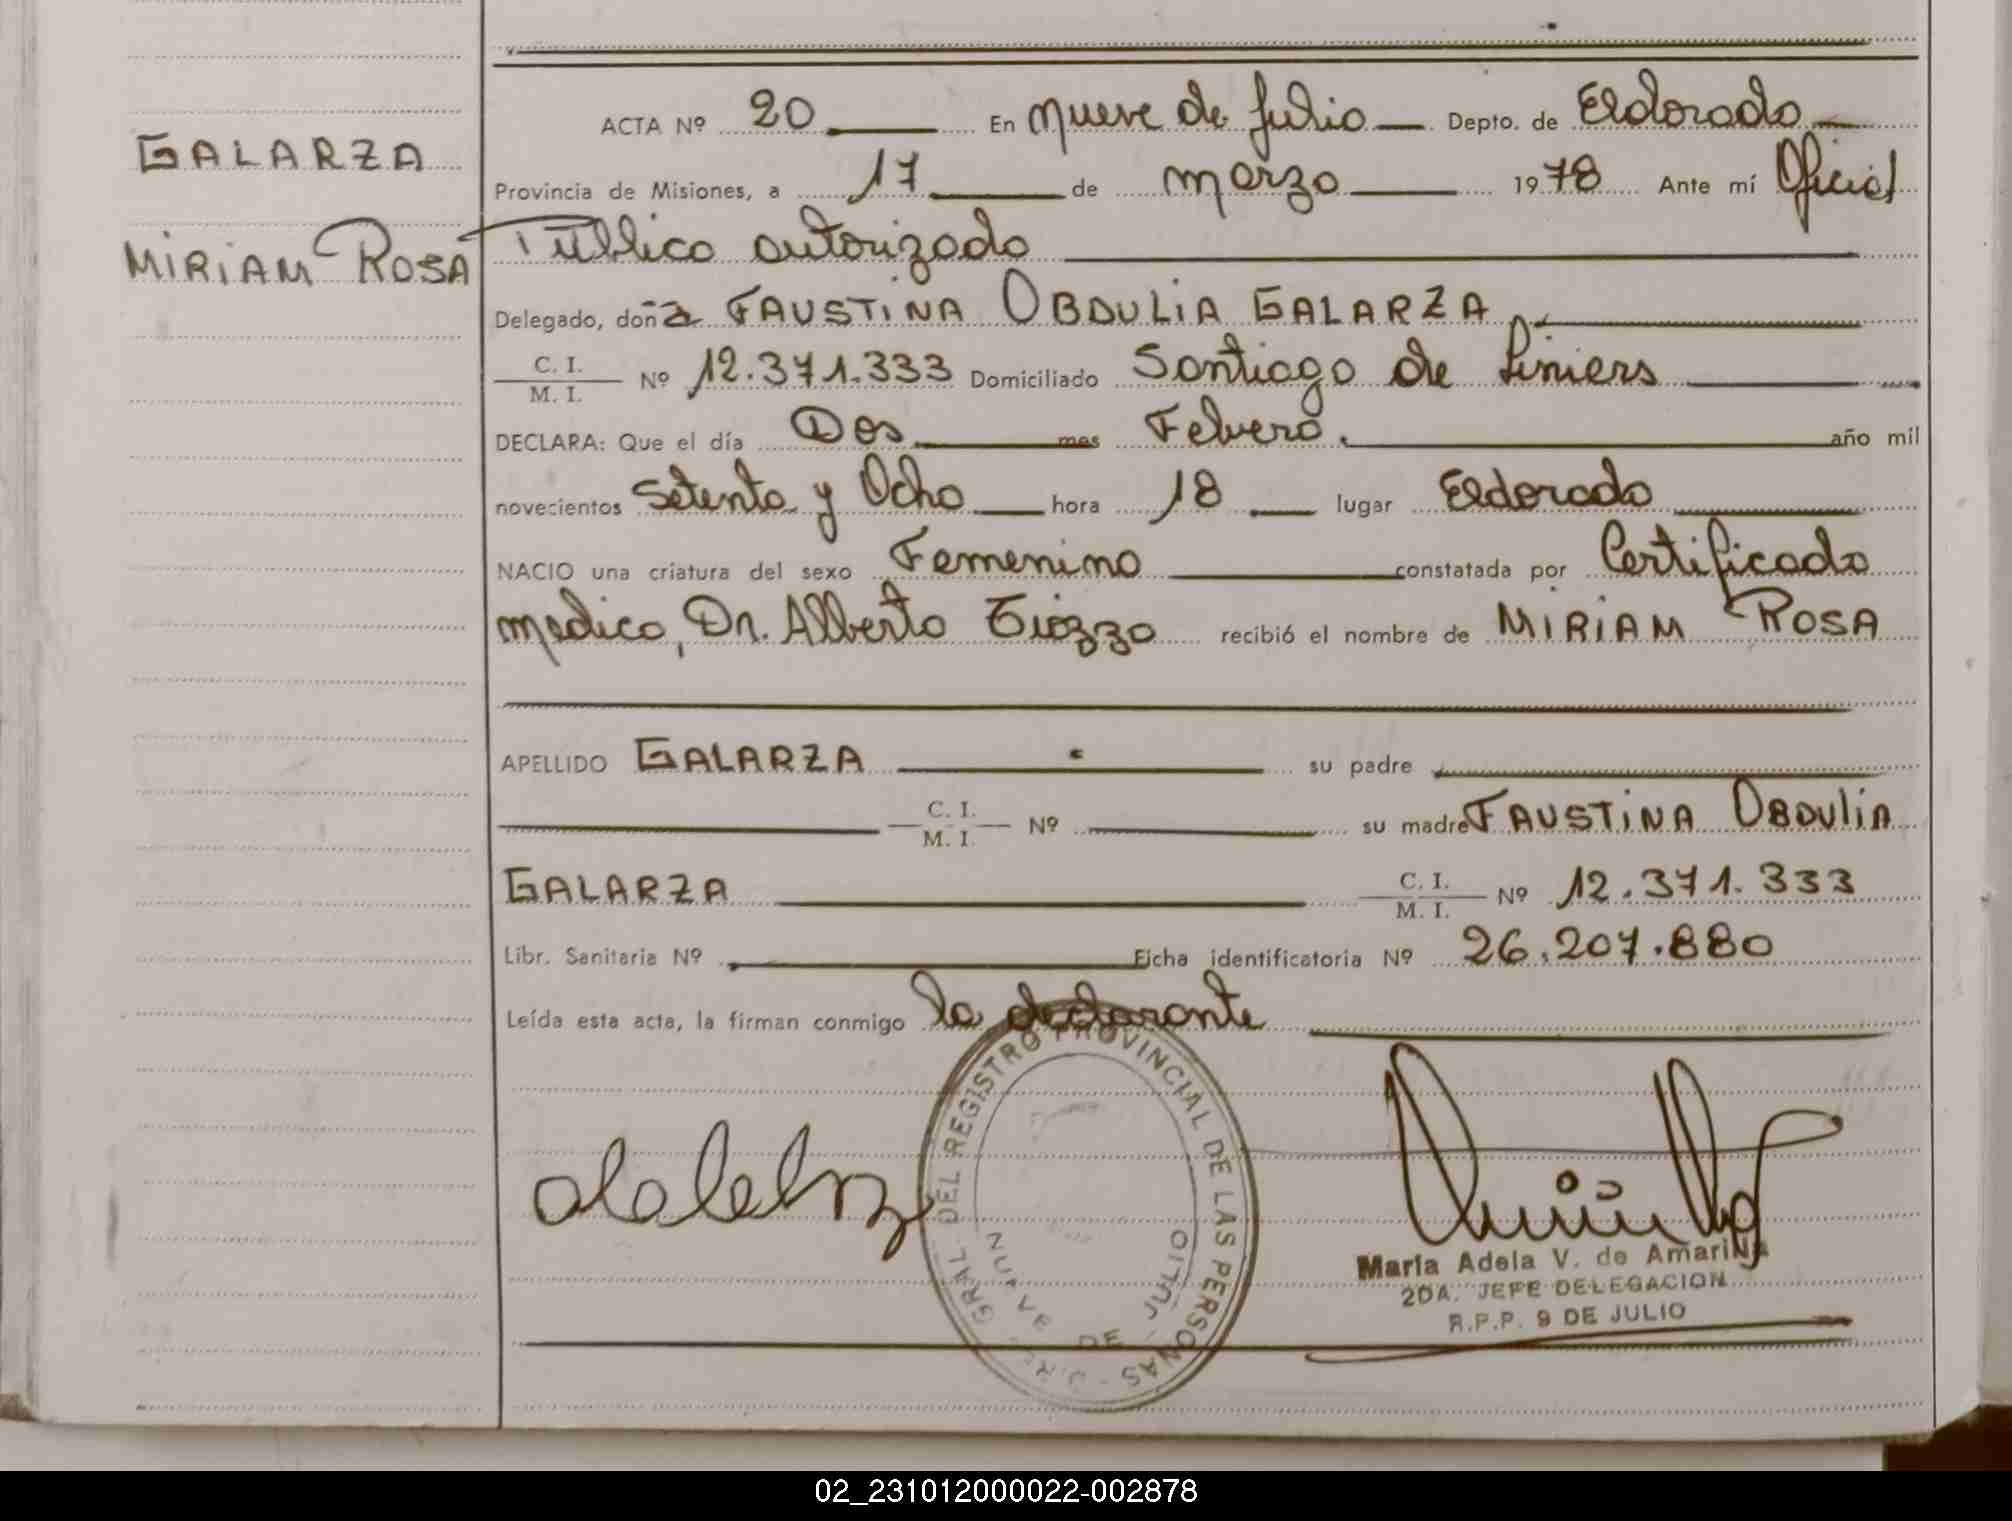 GALARZA
MIRIAM ROSA
ACTA Nº 20 En Nueve de Julio Depto. de Eldorado
Provincia de Misiones, a 17 de marzo 1978 Ante mí Oficial
Público autorizado
Delegado, doña FAUSTINA OBDULIA GALARZA
C. I.
M. I. Nº 12.371.333 Domiciliado Santiago de Liniers
DECLARA: Que el día Dos mes Febrero año mil
novecientos Setenta y Ocho hora 18 lugar Eldorado
NACIO una criatura del sexo Femenino constatada por Certificado
medico, Dr. Alberto recibió el nombre de MIRIAM ROSA
APELLIDO GALARZA su padre
C. I.
M. I. Nº su madre FAUSTINA OBDULIA
GALARZA C. I.
M. I. Nº 12.371.333
Libr. Sanitaria Nº Ficha identificatoria Nº 26.207.880
Leída esta acta, la firman conmigo la declarante
GRAL. DEL REGISTRO PROVINCIAL DE LAS PERSONAS
NUEVE DE JULIO
María Adela V. de Amarilla
2DA. JEFE DELEGACION
R.P.P. 9 DE JULIO
02_231012000022-002878